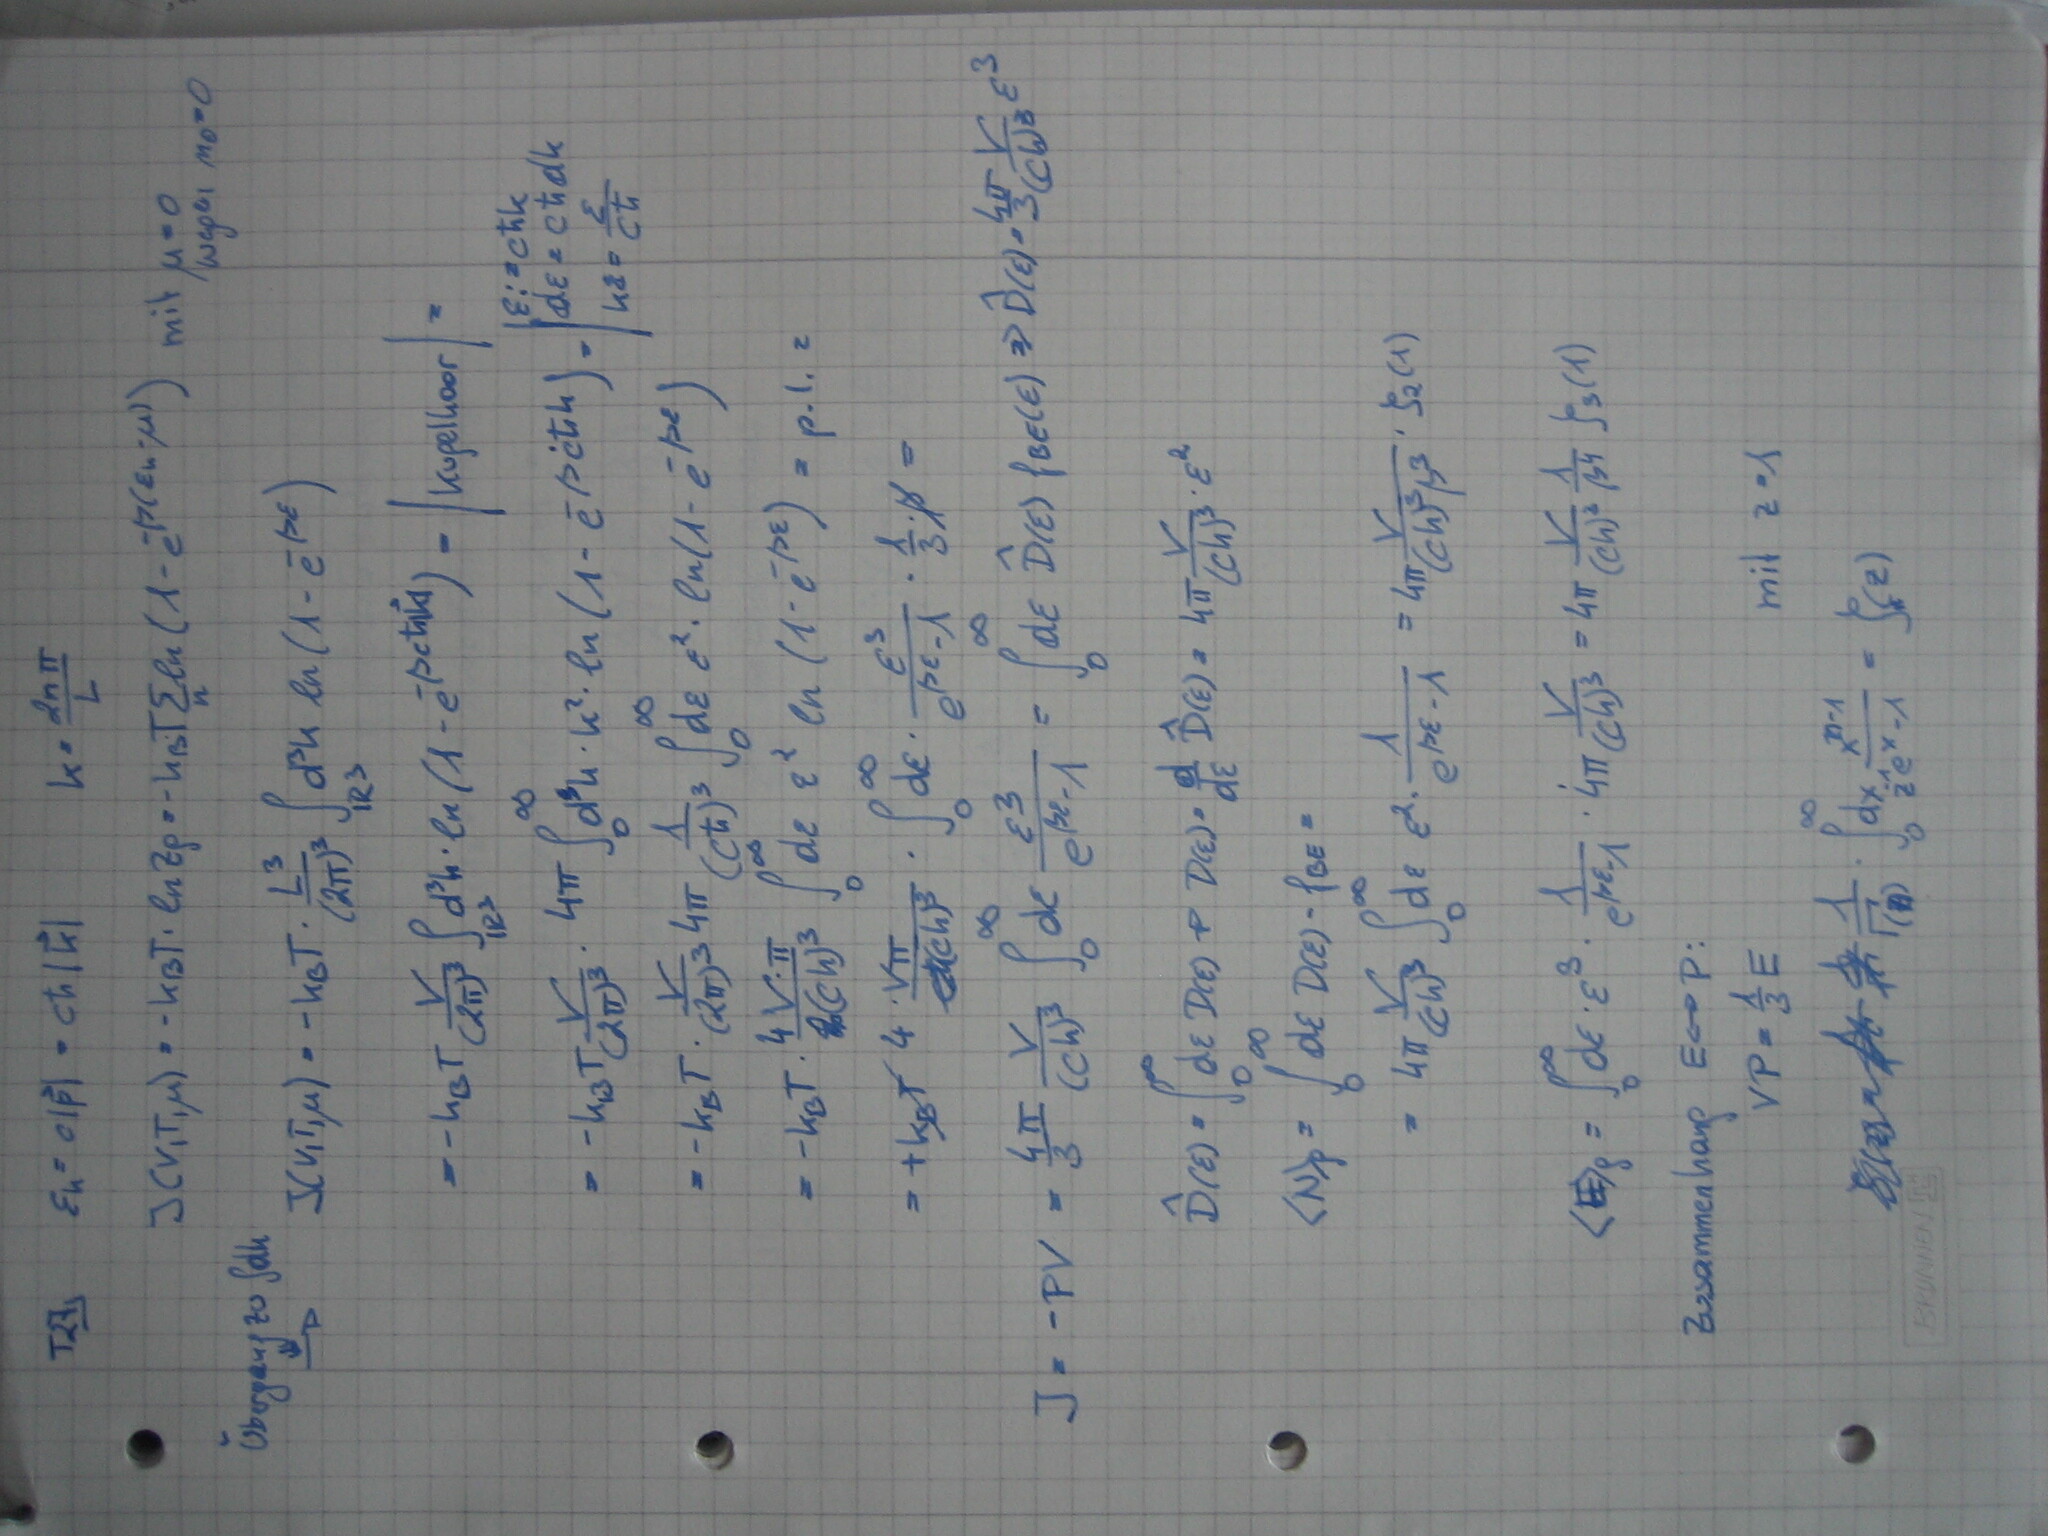 T27) εₙ = c|p⃗| = cħ|k⃗| k = 2nπ/L
J(V,T,μ) = -k_BT · ln Z_P = -k_BT Σₙ ln(1 - e^{-β(εₙ-μ)}) mit μ=0
wegen m₀=0
Übergang zu ∫dk
J(V,T,μ) = -k_BT · L³/(2π)³ ∫_{ℝ³} d³k ln(1 - e^{-βε})
= -k_BT V/(2π)³ ∫_{ℝ³} d³k · ln(1 - e^{-βcħ|k⃗|}) = |Kugelkoor| =
= -k_BT V/(2π)³ · 4π ∫₀^∞ d³k · k² · ln(1 - e^{-βcħk}) = |ε := cħk
dε = cħ dk
k² = ε/cħ
= -k_BT · V/(2π)³ 4π 1/(cħ)³ ∫₀^∞ dε ε² · ln(1 - e^{-βε})
= -k_BT · 4 V·π/(ch)³ ∫₀^∞ dε ε² ln(1 - e^{-βε}) = p.I. =
= + k_BT 4 · Vπ/(ch)³ · ∫₀^∞ dε · ε³/(e^{βε}-1) · 1/3 · β =
J = -PV = 4π/3 V/(ch)³ ∫₀^∞ dε ε³/(e^{βε}-1) = ∫₀^∞ dε D̂(ε) f_BE(ε) ⇒ D̂(ε) = 4π/3 V/(ch)³ ε³
D̂(ε) = ∫₀^∞ dε D(ε) ⇒ D(ε) = d/dε D̂(ε) = 4π V/(ch)³ · ε²
⟨N⟩_P = ∫₀^∞ dε D(ε) · f_BE =
= 4π V/(ch)³ ∫₀^∞ dε ε² · 1/(e^{βε}-1) = 4π V/((ch)³β³) · ζ₂(1)
⟨E⟩_P = ∫₀^∞ dε · ε³ · 1/(e^{βε}-1) · 4π V/(ch)³ = 4π V/(ch)² 1/β⁴ ζ₃(1)
Zusammenhang E↔P:
VP = 1/3 E mit z=1
1/Γ(n) · ∫₀^∞ dx x^{n-1}/(z⁻¹eˣ-1) = ζₙ(z)
BRUNNEN